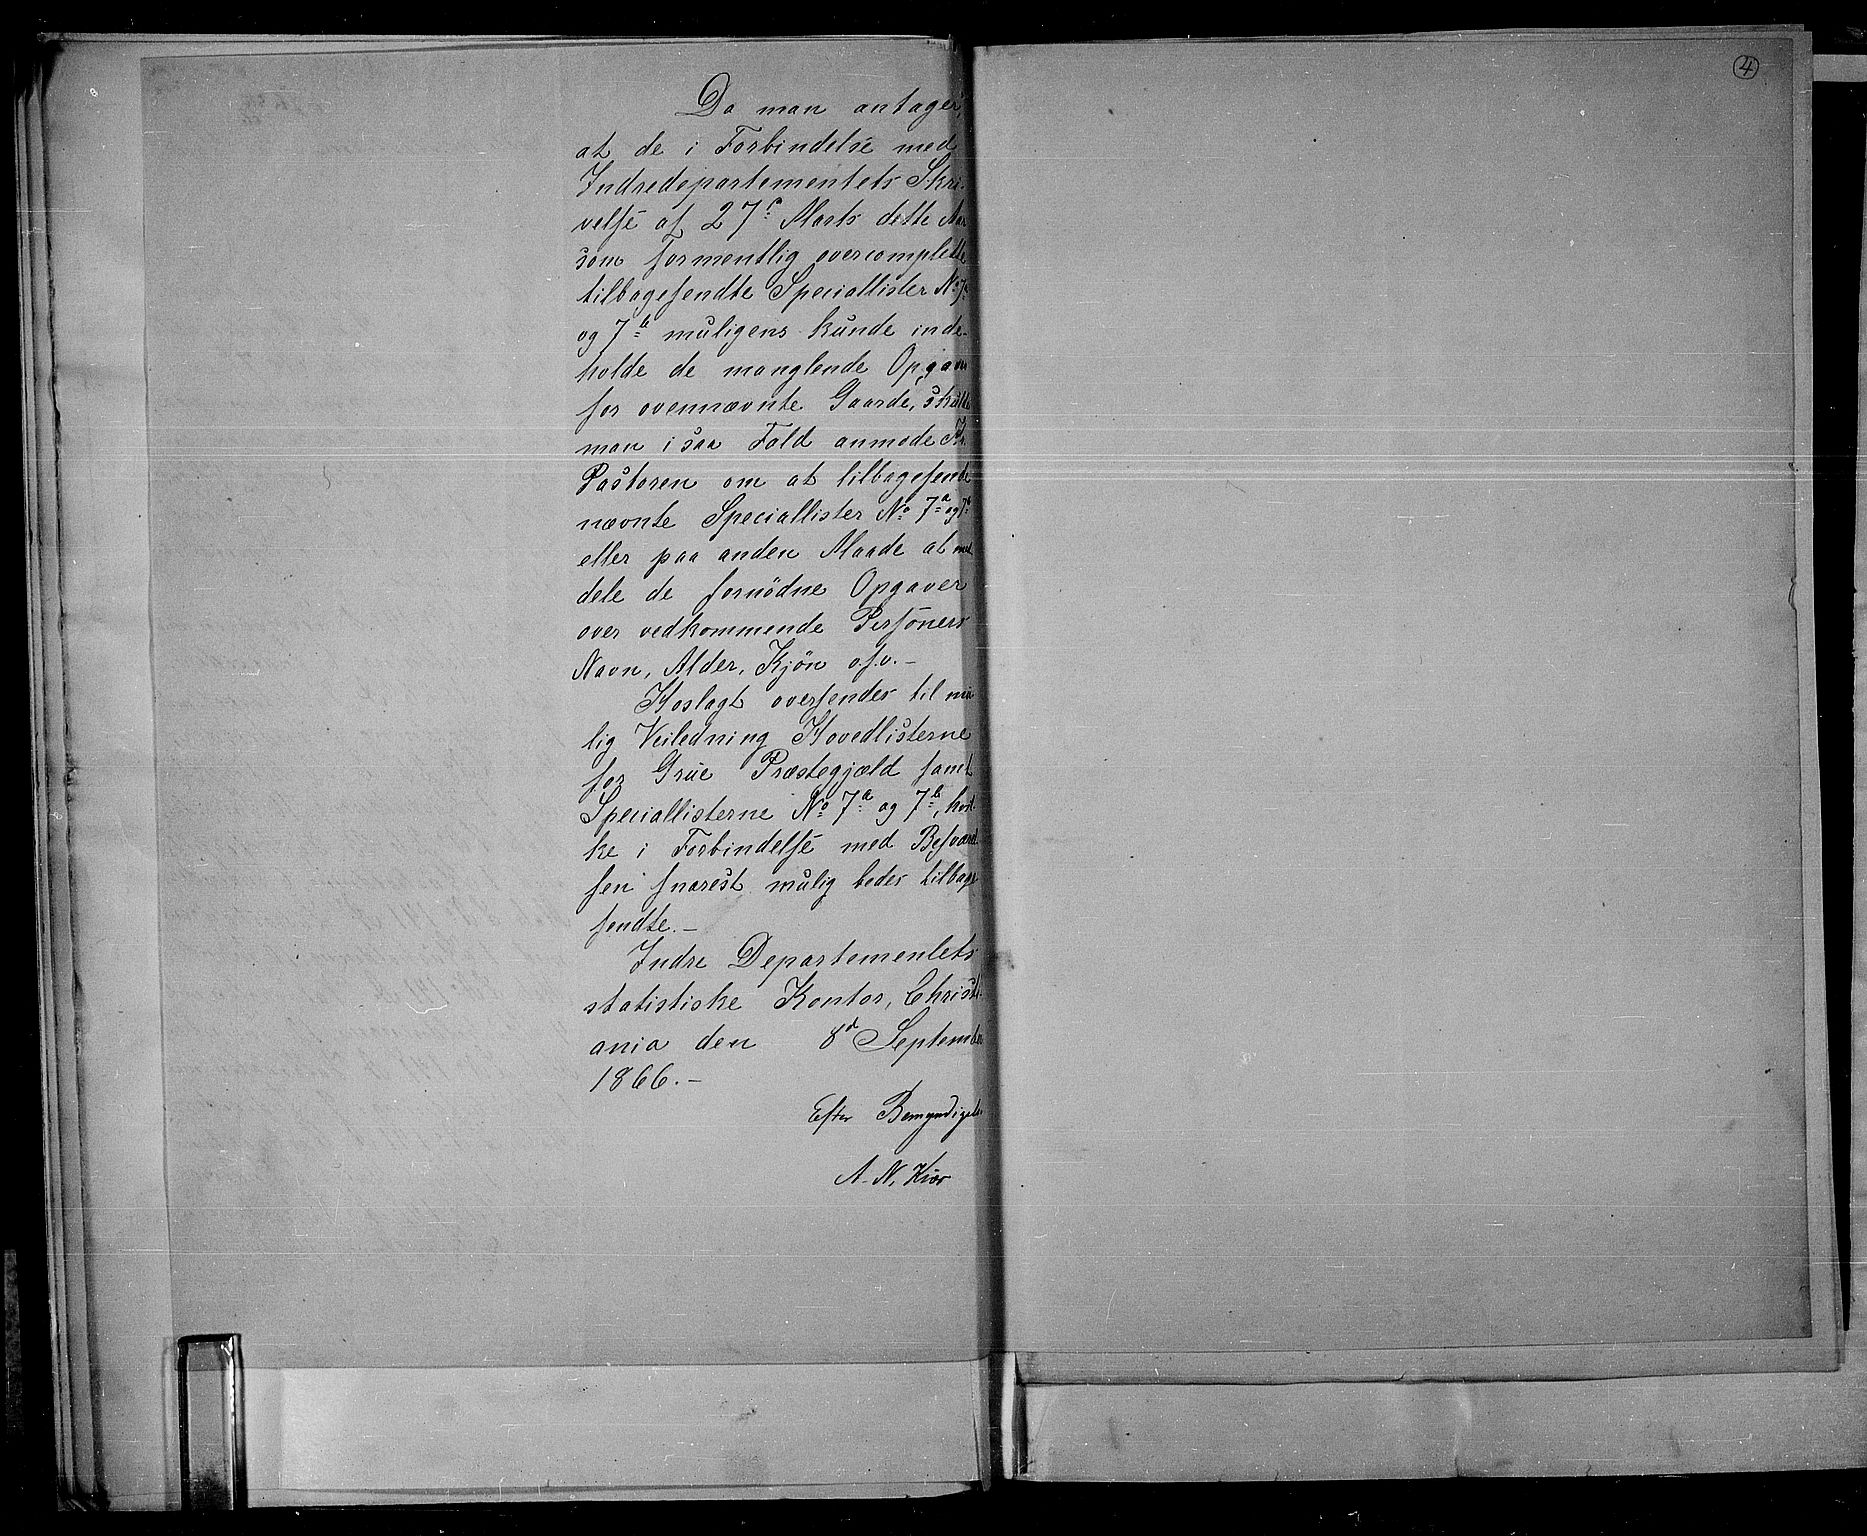 4
Da man antager,
at de i Forbindelse med
Indredepartementets Skri-
velse af 27de Marts dette Aar
som formentlig overcomplette
tilbagesendte Speciallister No 7a
og 7b muligens kunde inde-
holde de manglende Opgaver
for ovennævnte Gaarde, skulde
man i saa Fald anmode Hr.
Pastoren om at tilbagesende
nævnte Speciallister No 7a og 7b
eller paa anden Maade at med
dele de fornödne Opgaver
over vedkommende Personers
Navn, Alder, Kjön o.s.v.-
Hoslagt oversendes til mu
lig Veiledning Hovedlisterne
for Grue Præstegjæld samt
Speciallisterne No 7a og 7b, hvil-
ke i Forbindelse med Besvarel-
sen snarest mulig bedes tilbage
sendte.-
Indre Departementets
statistiske Kontor, Christi-
ania den 8d September
1866.-
Efter Bemyndigelse
A. N. Kiær